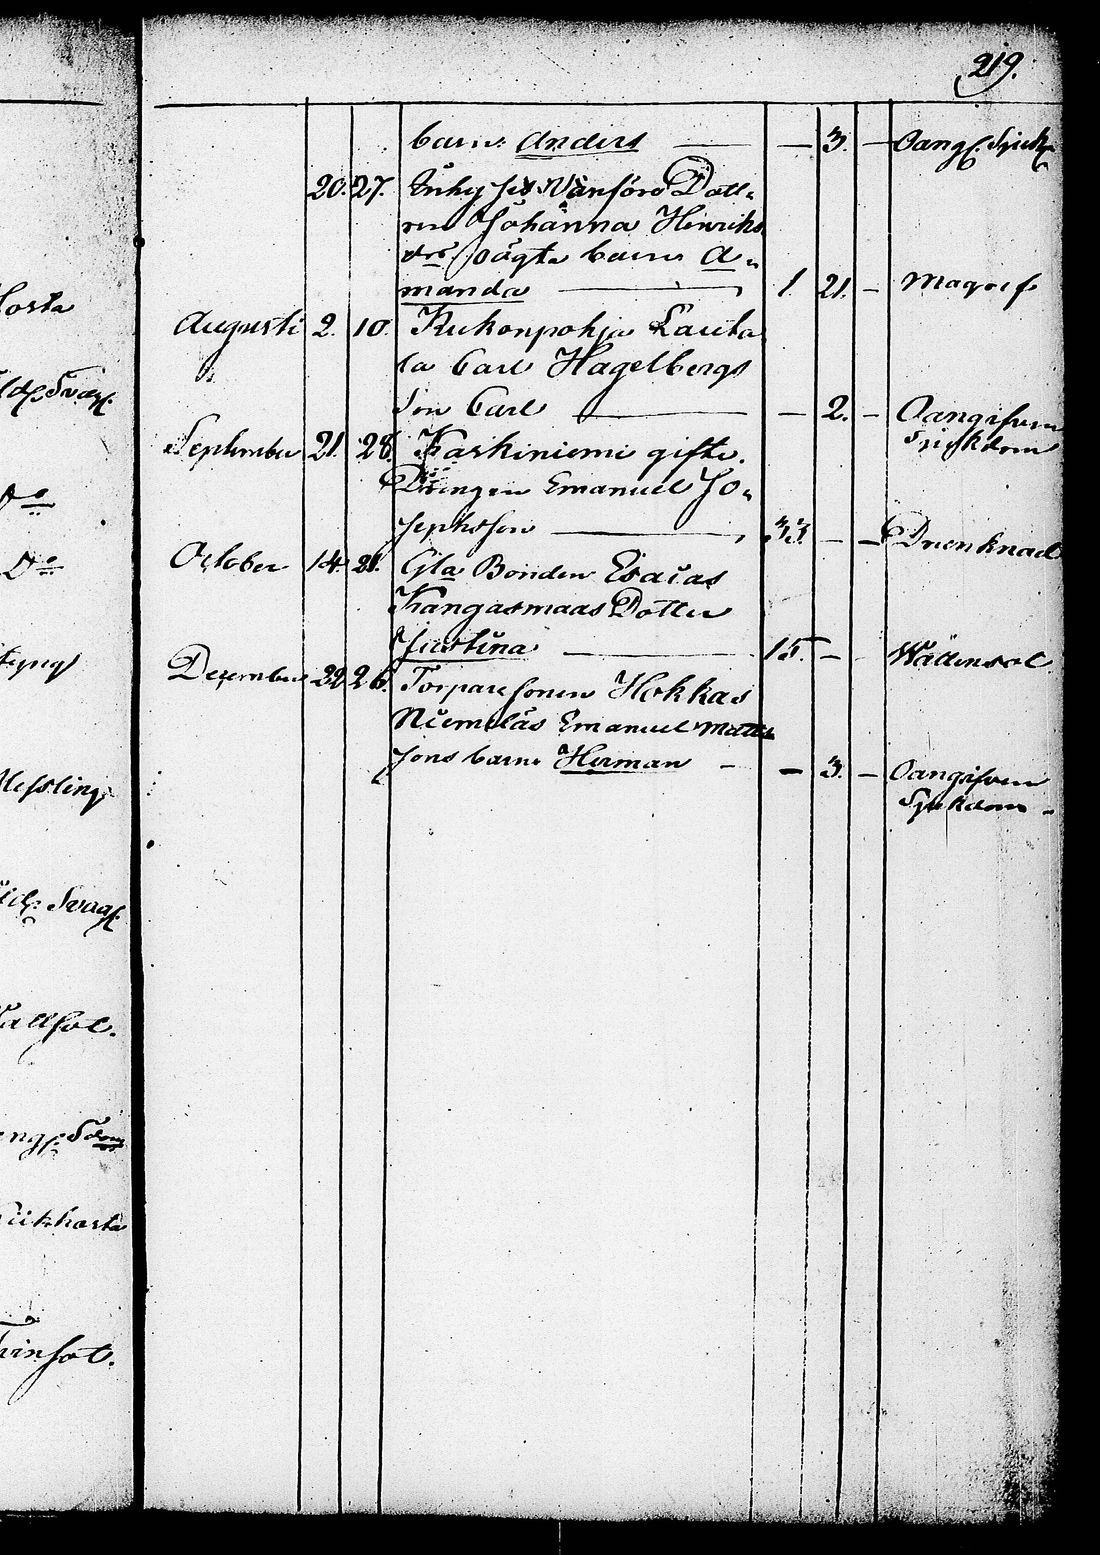 219.
barn Anders — — 3. — Oangf. Sjukd
20. 27. Inhyses Vanföra Dott-
ren Johanna Hinriks
drs oägta barn A-
manda — 1. 21. — Magref
Augusti 2. 10. Kukonpohja Lauta
la Carl Hagelbergs
Son Carl — — 2. — Oangifven
Sjukdom
September 21. 28. Kaskiniemi gifte
Drengen Emanuel Jo-
sephsson — 33. — — Drunknad
October 14. 21. Gla Bonden Esaias
Kangasmaas Dotter
Justina — 15. — Wattensot
December 22 26. Torparesonen Hokkas
Niemeläs Emanuel Matts
sons barn Herman — — 3. — Oangifven
Sjukdom
Hosta
Do
Do
Messling
Svagf.
Wattsot.
Kikhosta